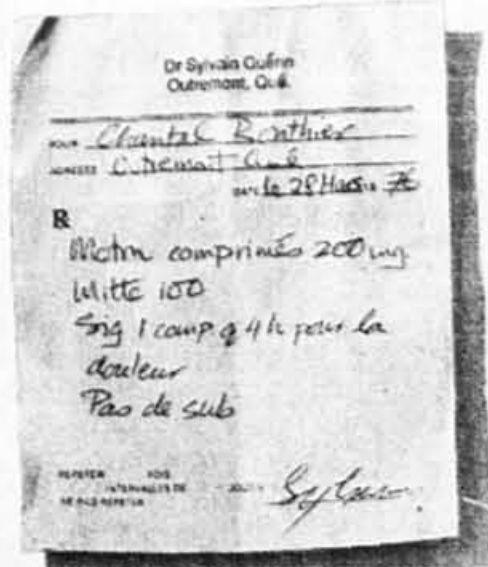 Dr Sylvain Guérin
Outremont, Qué.
POUR Chantal Bonthier
ADRESSE Outremont Qué
le 28 Mars 76
R
Motrin comprimés 200 mg
Mitte 100
Sig 1 comp q 4 h pour la
douleur
Pas de sub
REPETER FOIS
INTERVALLES DE JOURS
NE PAS REPETER